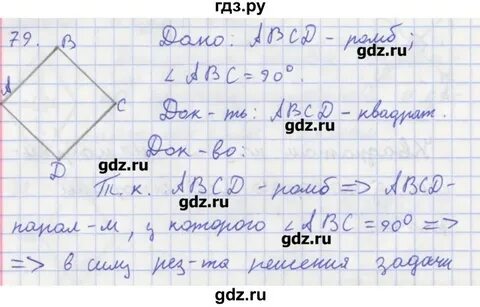 гдз.ру
79. B Дано: ABCD - ромб;
A ∠ABC = 90°
gdz.ru
C Док-ть: ABCD - квадрат.
gdz.ru
D Док-во:
gdz.ru
Т.к. ABCD - ромб => ABCD-
gdz.ru
парал-м, у которого ∠ABC = 90° =>
gdz.ru
=> в силу рез-та решения задачи
gdz.ru